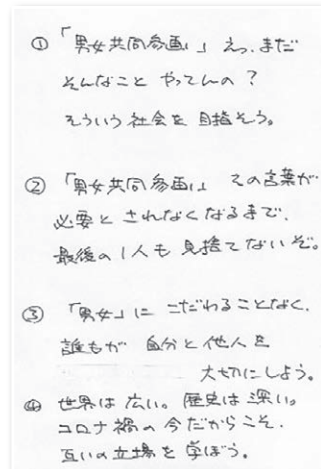 ① 「男女共同参画」」 えっ、まだ
そんなこと やってんの？
そういう社会を 目指そう。
② 「男女共同参画」」 その言葉が
必要と されなくなるまで、
最後の1人も 見捨てないぞ。
③ 「男女」に こだわることなく、
誰もが 自分と他人を
大切にしよう。
④ 世界は 広い。 歴史は 深い。
コロナ禍の今だからこそ、
互いの立場を 学ぼう。